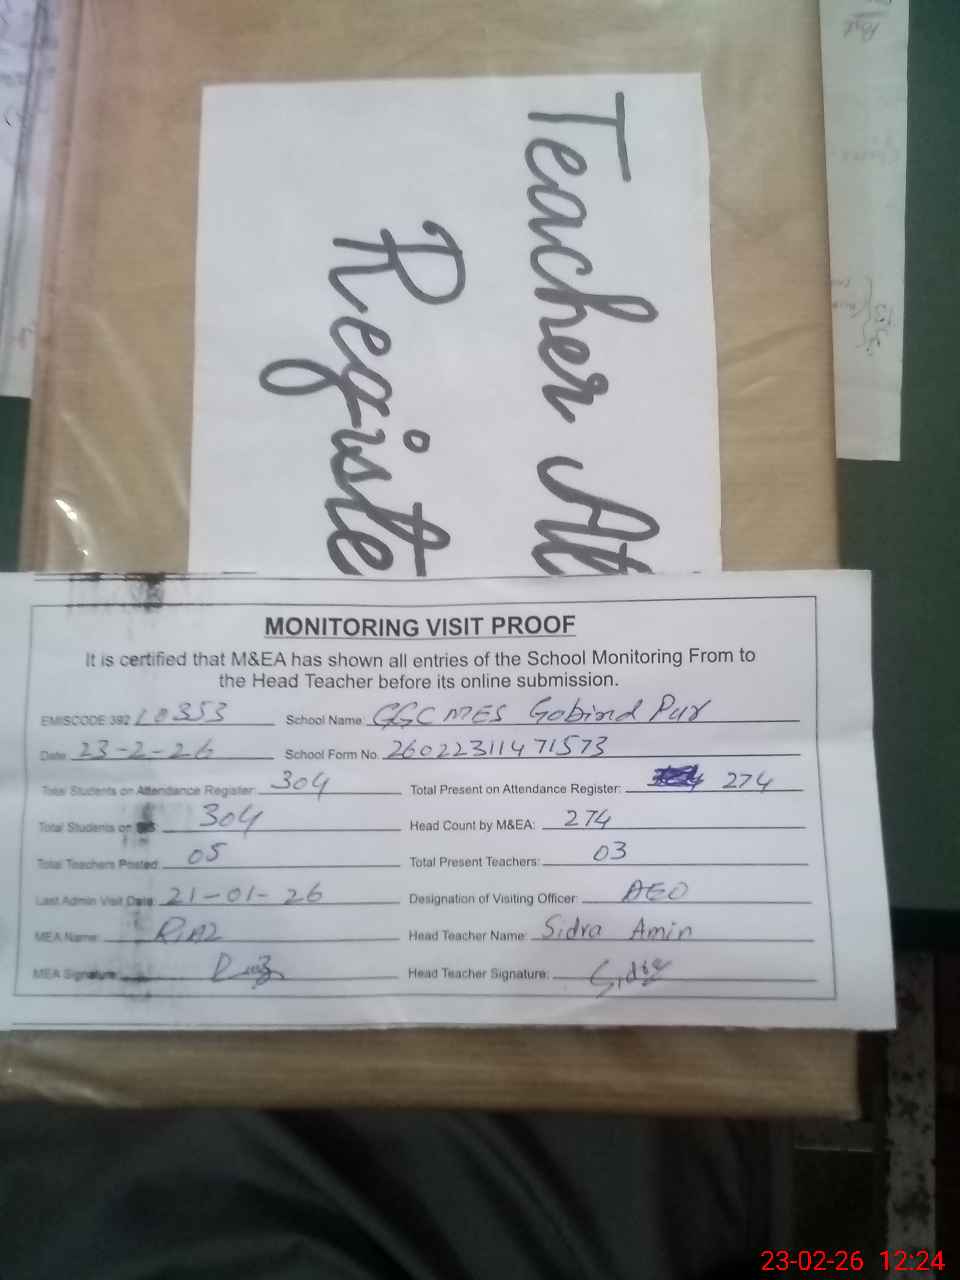 Teacher At
Registe
MONITORING VISIT PROOF
It is certified that M&EA has shown all entries of the School Monitoring From to
the Head Teacher before its online submission.
EMISCODE 392 10353 School Name: GGCMES Gobind Pur
Date: 23-2-26 School Form No. 26022311471573
Total Students on Attendance Register: 304 Total Present on Attendance Register: 274
Total Students on 304 Head Count by M&EA: 274
Total Teachers Posted: 05 Total Present Teachers: 03
Last Admin Visit Date: 21-01-26 Designation of Visiting Officer: AEO
MEA Name: RIAZ Head Teacher Name: Sidra Amin
MEA Signature: Head Teacher Signature: Sidra
23-02-26 12:24